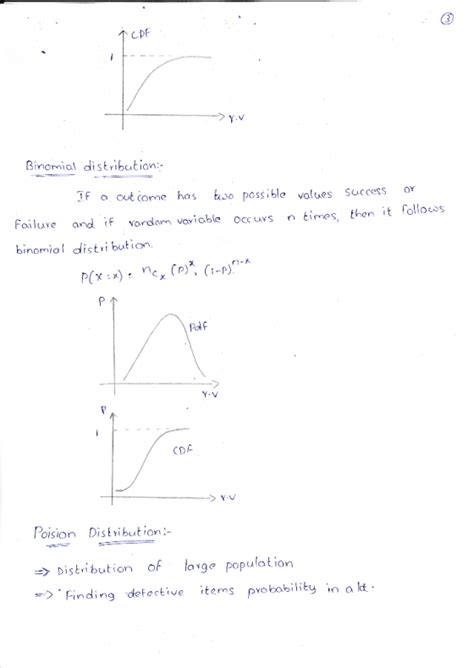 3
CDF
1
r.v
Binomial distribution:-
If a outcome has two possible values success or
Failure and if random variable occurs n times, then it follows
binomial distribution.
P(X=x) = nCx (P)^x. (1-P)^n-x
P
Pdf
r.v
P
1
CDF
r.v
Poision Distribution:-
=> Distribution of large population
=> Finding defective items probability in a lot.